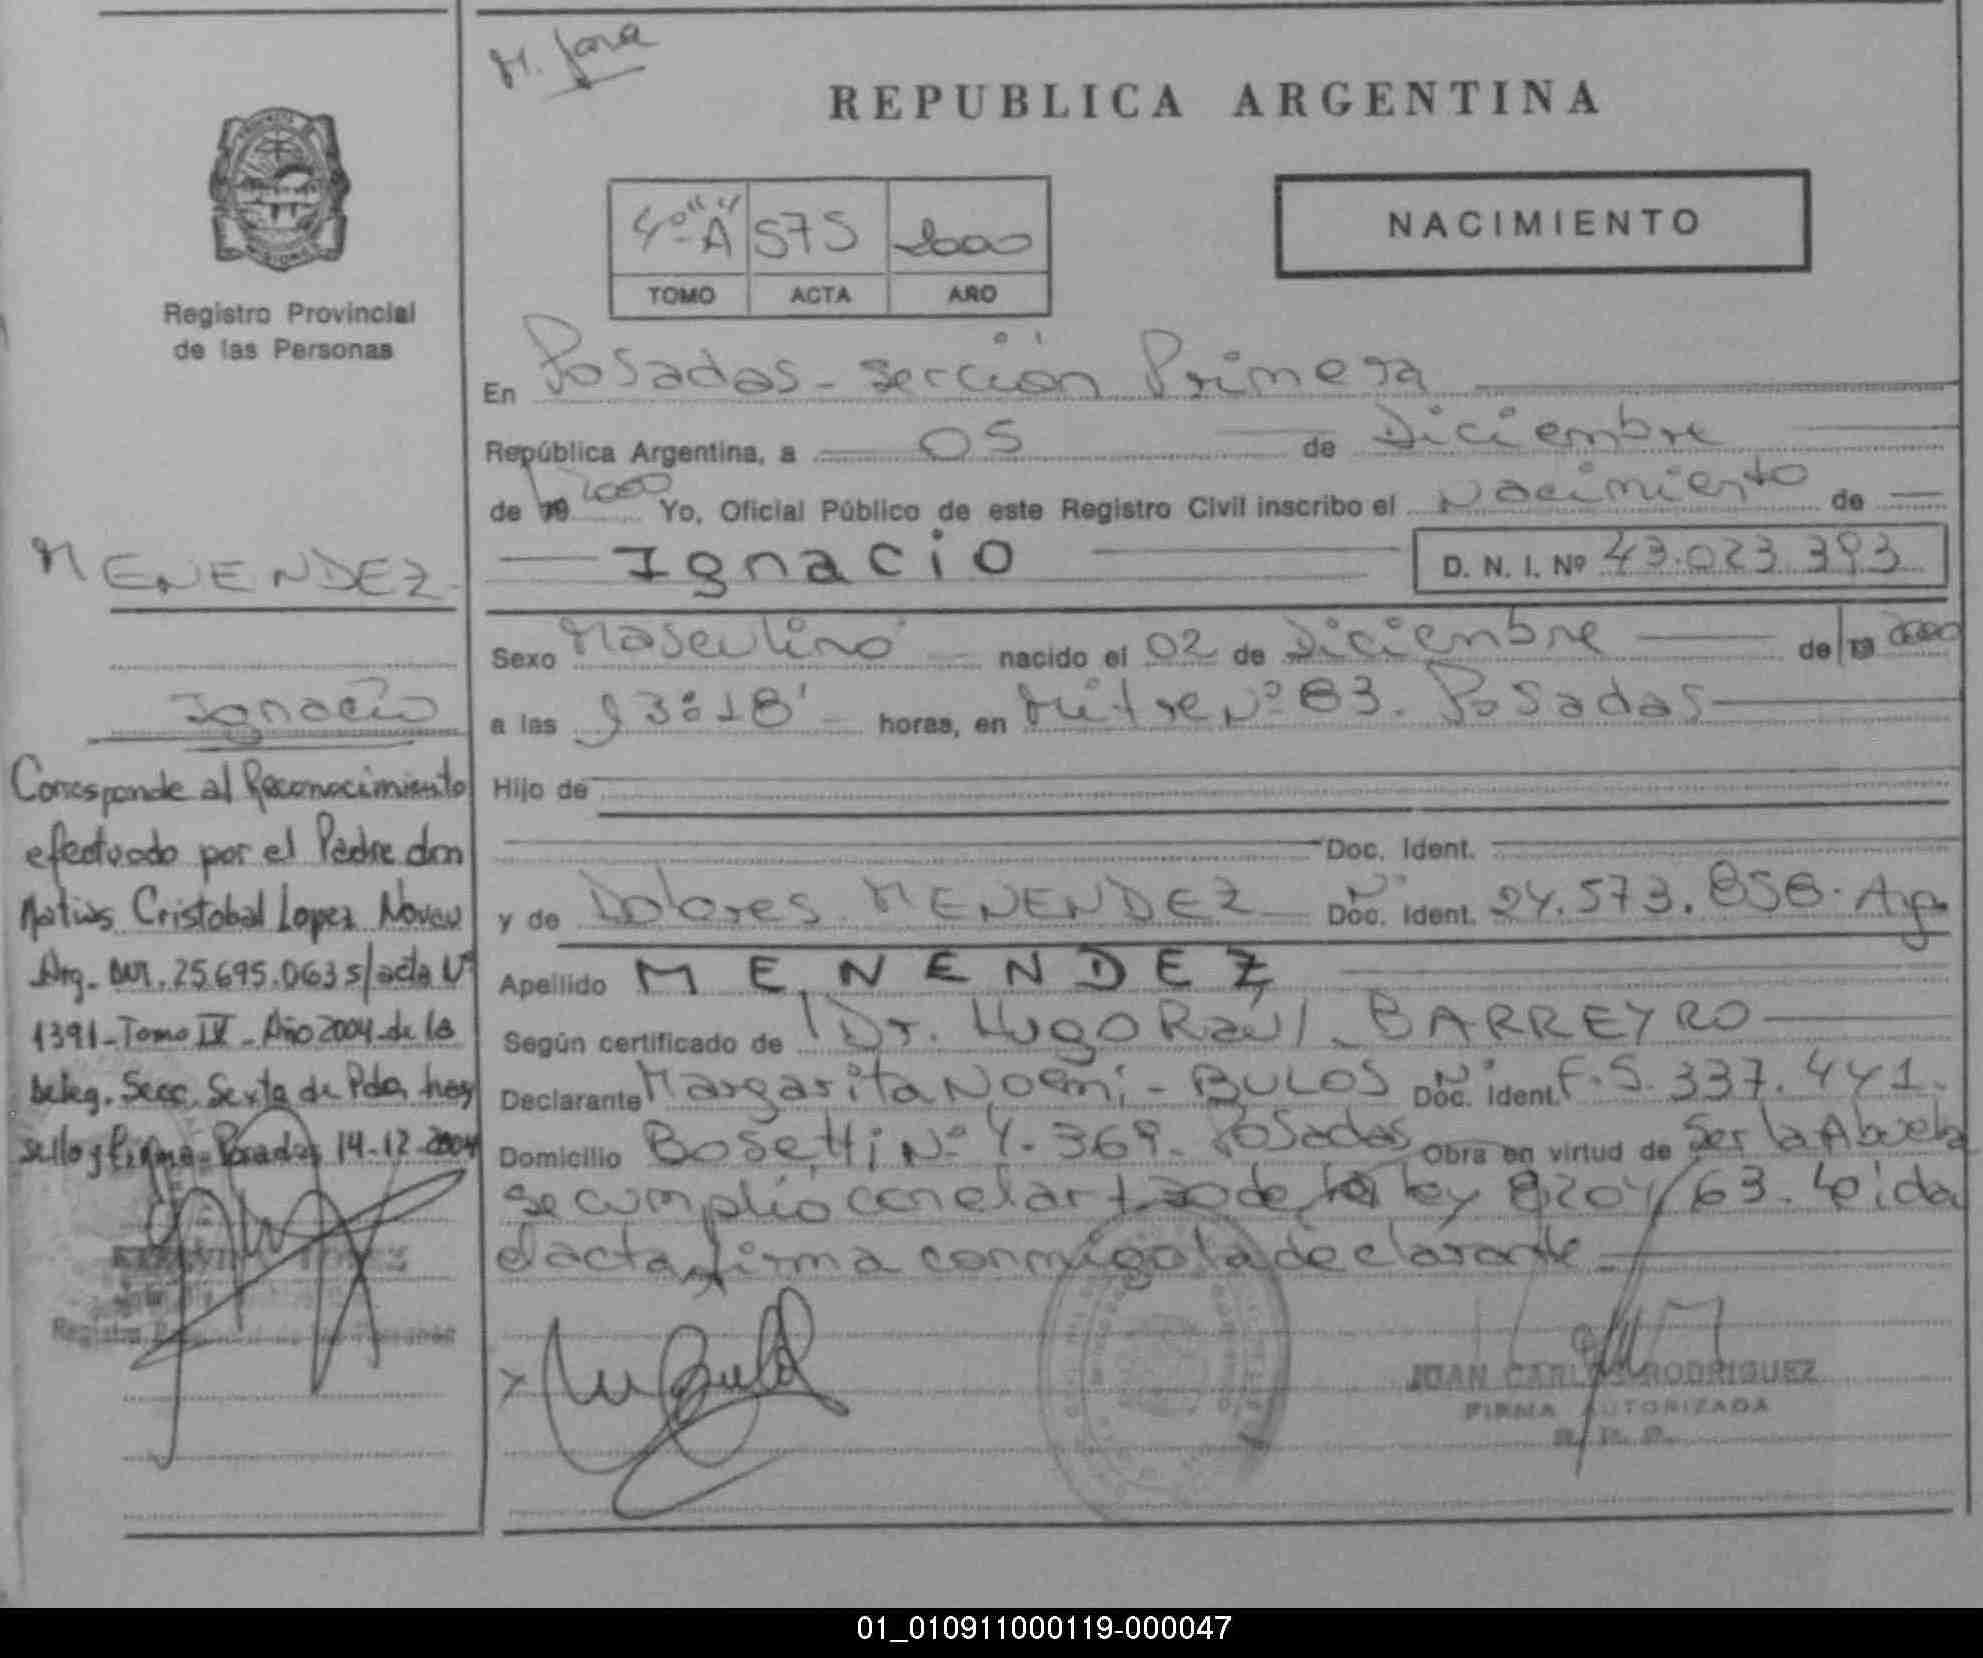 M. Jara
REPUBLICA ARGENTINA
NACIMIENTO
4º "A" 575 2000
TOMO ACTA AÑO
Registro Provincial
de las Personas
En Posadas - sección Primera
República Argentina, a 05 de Diciembre
de 19 2000 Yo, Oficial Público de este Registro Civil inscribo el Nacimiento de
Ignacio D. N. I. Nº 43.023.393
Sexo Masculino nacido el 02 de Diciembre de 19 2000
a las 13:18' horas, en Mitre Nº 83. Posadas
Hijo de
Doc. Ident.
y de Dolores MENENDEZ Doc. Ident. Nº 24.573.858. Arg.
Apellido MENENDEZ
Según certificado de Dr. Hugo Raúl BARREYRO
Declarante Margarita Noemi - BULOS Doc. Ident. Nº F. 5.337.441.
Domicilio Bosetti Nº 4.369. Posadas Obra en virtud de Ser la Abuela
se cumplió con el art 30 de la ley 8204/63. Leida
el acta, firma conmigo la declarante
JUAN CARLOS RODRIGUEZ
FIRMA AUTORIZADA
R. P. P.
MENENDEZ
Ignacio
Corresponde al Reconocimiento
efectuado por el Padre don
Matias Cristobal Lopez
Arg. DNI. 25.695.063 s/acta Nº
1391 - Tomo IV - Año 2004 - de la
Deleg. Secc. Sexta de Pdas, hay
sello y firma - Posadas 14-12-2004
01_010911000119-000047